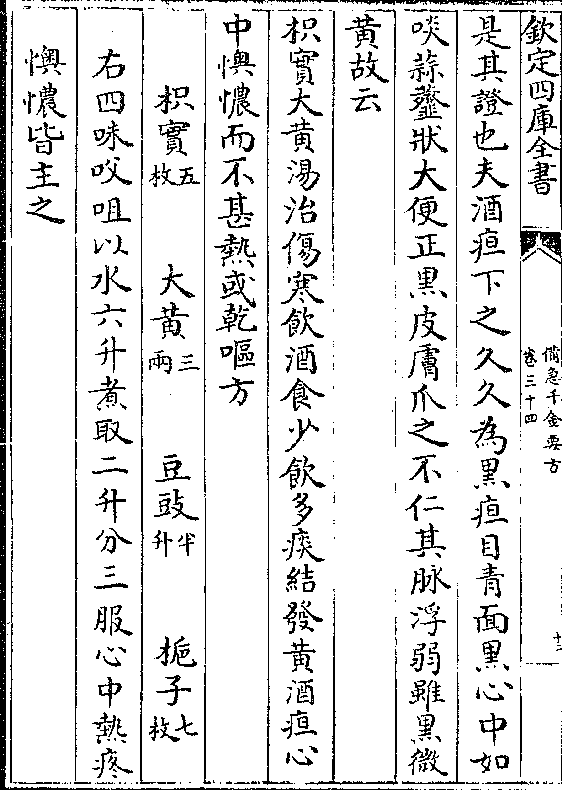 欽定四庫全書
備急千金要方
卷三十四
十三
是其證也夫酒疸下之久久為黒疸目青面黒心中如
啖蒜虀狀大便正黒皮膚爪之不仁其脉浮弱雖黒微
黄故云
枳實大黄湯治傷寒飲酒食少飲多痰結發黄酒疸心
中懊憹而不甚熱或乾嘔方
枳實五枚 大黄三兩 豆豉半升 梔子七枚
右四味㕮咀以水六升煮取二升分三服心中熱疼
懊憹皆主之